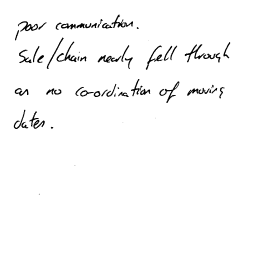 poor communication.
Sale/chain nearly fell through
as no co-ordination of moving
dates.